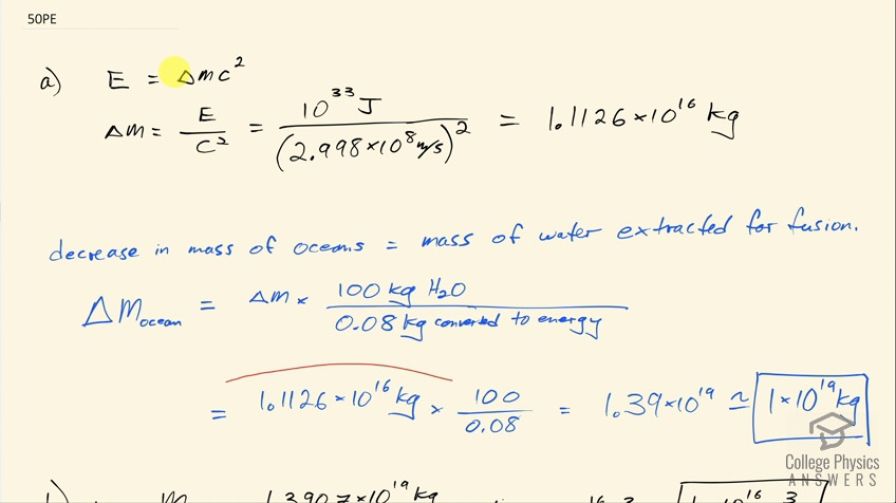 50PE
a) E = Δmc²
Δm = E/c² = 10³³ J / (2.998×10⁸ m/s)² = 1.1126×10¹⁶ kg
decrease in mass of oceans = mass of water extracted for fusion.
ΔM_ocean = Δm × 100 kg H₂O / 0.08 kg converted to energy
= 1.1126×10¹⁶ kg × 100/0.08 = 1.39×10¹⁹ ≃ 1×10¹⁹ kg
College Physics
ANSWERS